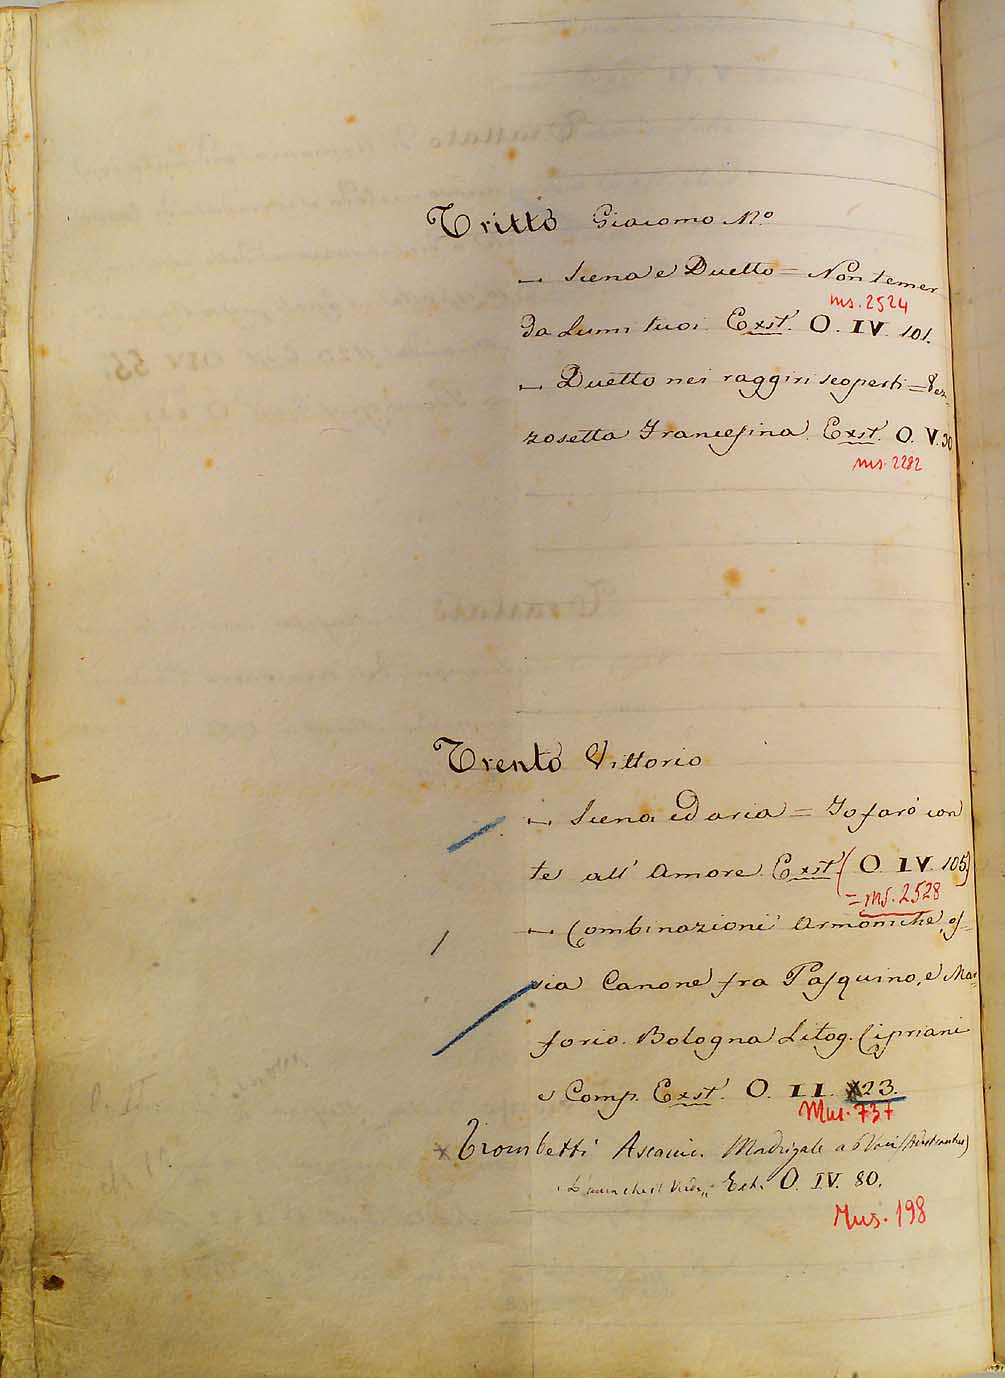 Tritto Giacomo Mº.
— Scena e Duetto = Non temer
ms. 2524
da Lumi tuoi Exst. O. IV. 101.
— Duetto nei raggiri scoperti = Vez-
zosetta Francesina. Exst. O. V. 30
ms. 2282
Trento Vittorio
— Scena ed aria = Io farò con
te all' Amore. Exst. (O. IV. 105)
= ms. 2528
— Combinazioni Armoniche, os-
sia Canone fra Pasquino, e Mar-
forio. Bologna Litog. Cipriani
e Comp. Exst. O. II. 23.
Mus. 737
× Trombetti Ascanio. Madrigale a 6 Voci
Est. O. IV. 80.
Mus. 198